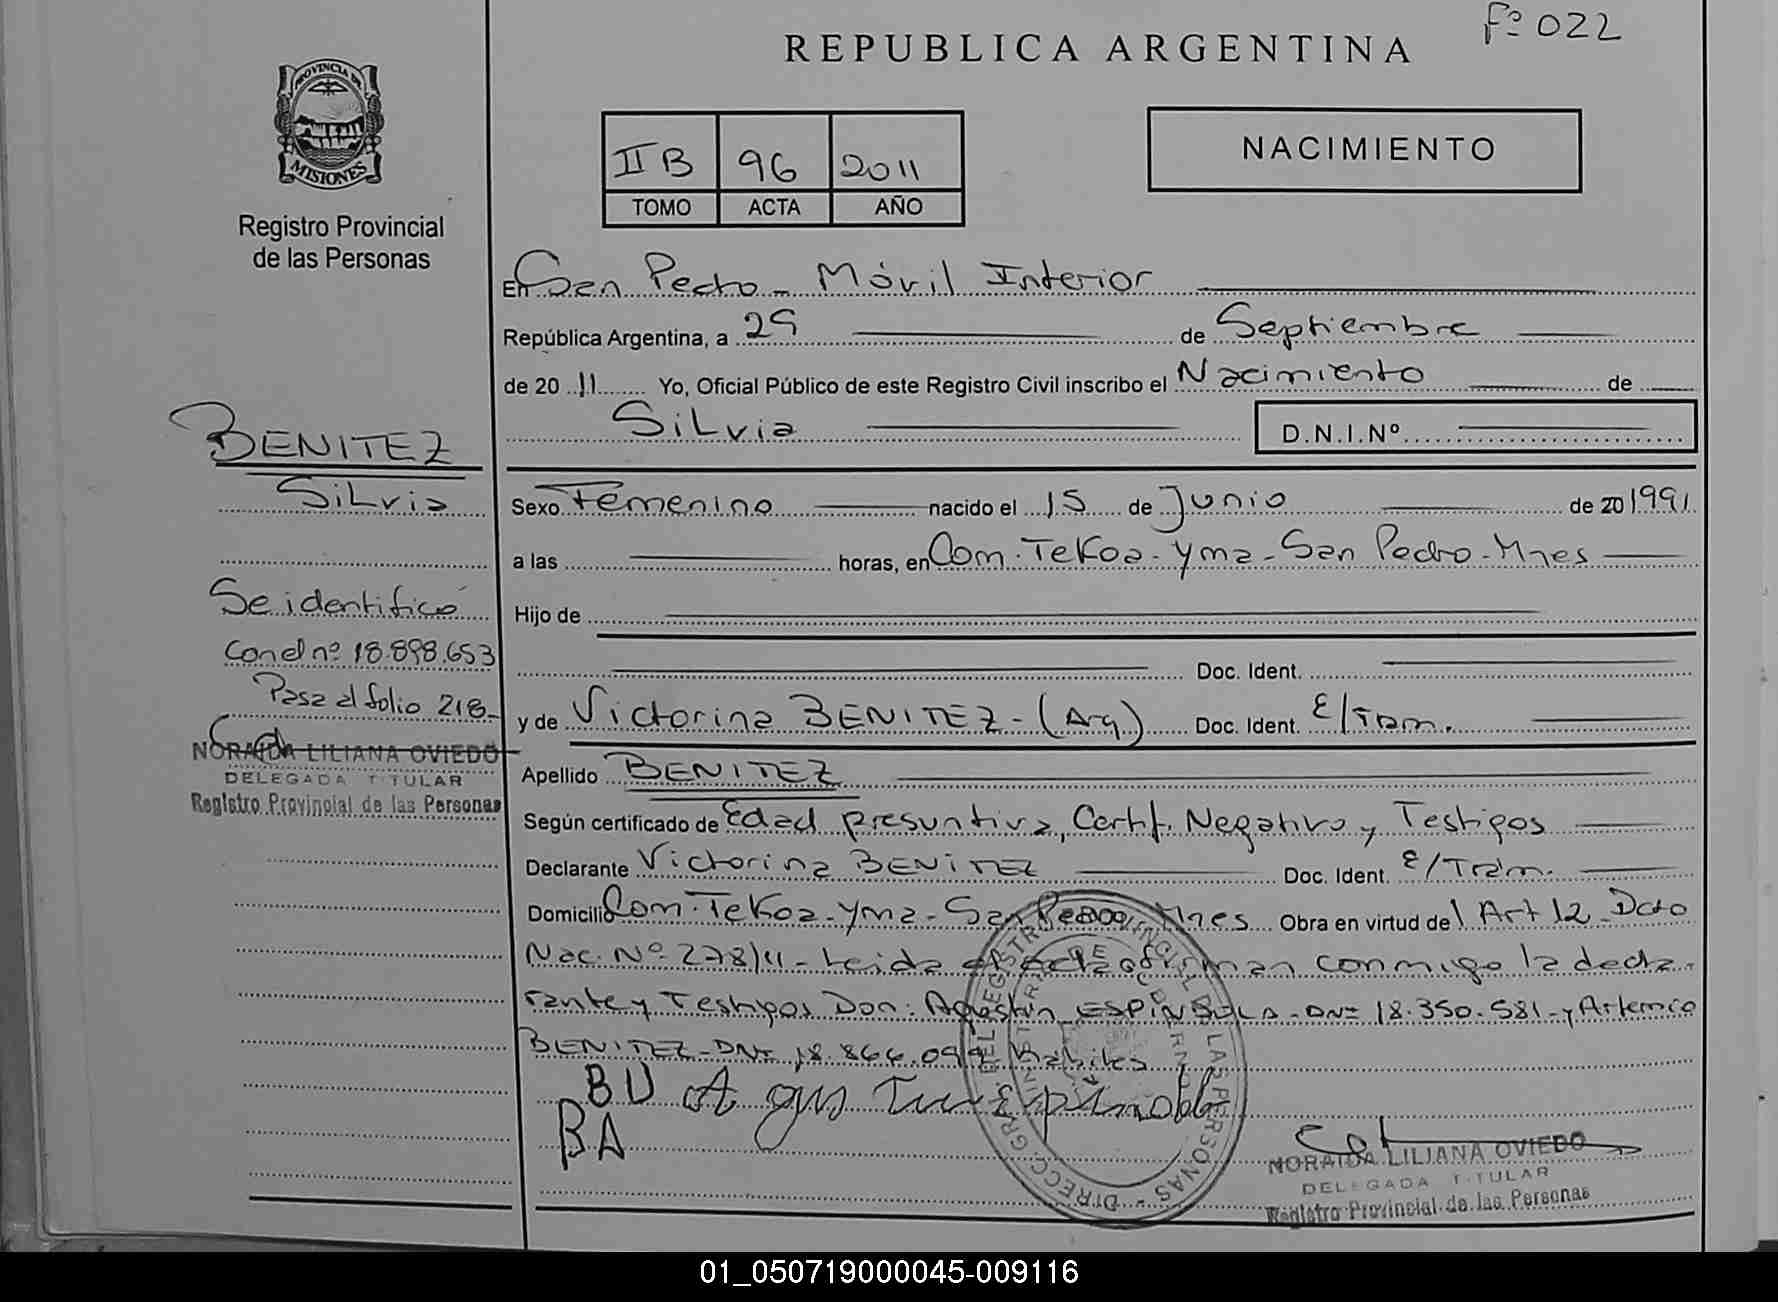 Fº 022
REPUBLICA ARGENTINA
PROVINCIA DE
MISIONES
Registro Provincial
de las Personas
II B 96 2011
TOMO ACTA AÑO
NACIMIENTO
En San Pedro - Móvil Interior
República Argentina, a 29 de Septiembre
de 20 11 Yo, Oficial Público de este Registro Civil inscribo el Nacimiento de
SiLvia D.N.I.Nº
BENITEZ
SiLvia
Se identificó
con el nº 18.898.653
Pasa al folio 218-
NORAIDA LILIANA OVIEDO
DELEGADA TITULAR
Registro Provincial de las Personas
Sexo Femenino nacido el 15 de Junio de 20 1991
a las horas, en Com. TeKoa - Yma - San Pedro - Mnes
Hijo de
Doc. Ident.
y de Victorina BENITEZ - (Arg) Doc. Ident. E/Tram.
Apellido BENITEZ
Según certificado de Edad presuntiva, Certif. Negativo y Testigos
Declarante Victorina BENITEZ Doc. Ident. E/Trám.
Domicilio Com. TeKoa - Yma - San Pedro Mnes Obra en virtud del Art 12 - Dcto
Nac. Nº 278/11 - Leida el acta firman conmigo la decla-
rante y Testigos Don: Agustin ESPINDOLA - DNI 18.350.581 - y Artemio
BENITEZ - DNI 18.866.099 habiles
BU Agustin Espinola
BA
NORAIDA LILIANA OVIEDO
DELEGADA TITULAR
Registro Provincial de las Personas
01_050719000045-009116